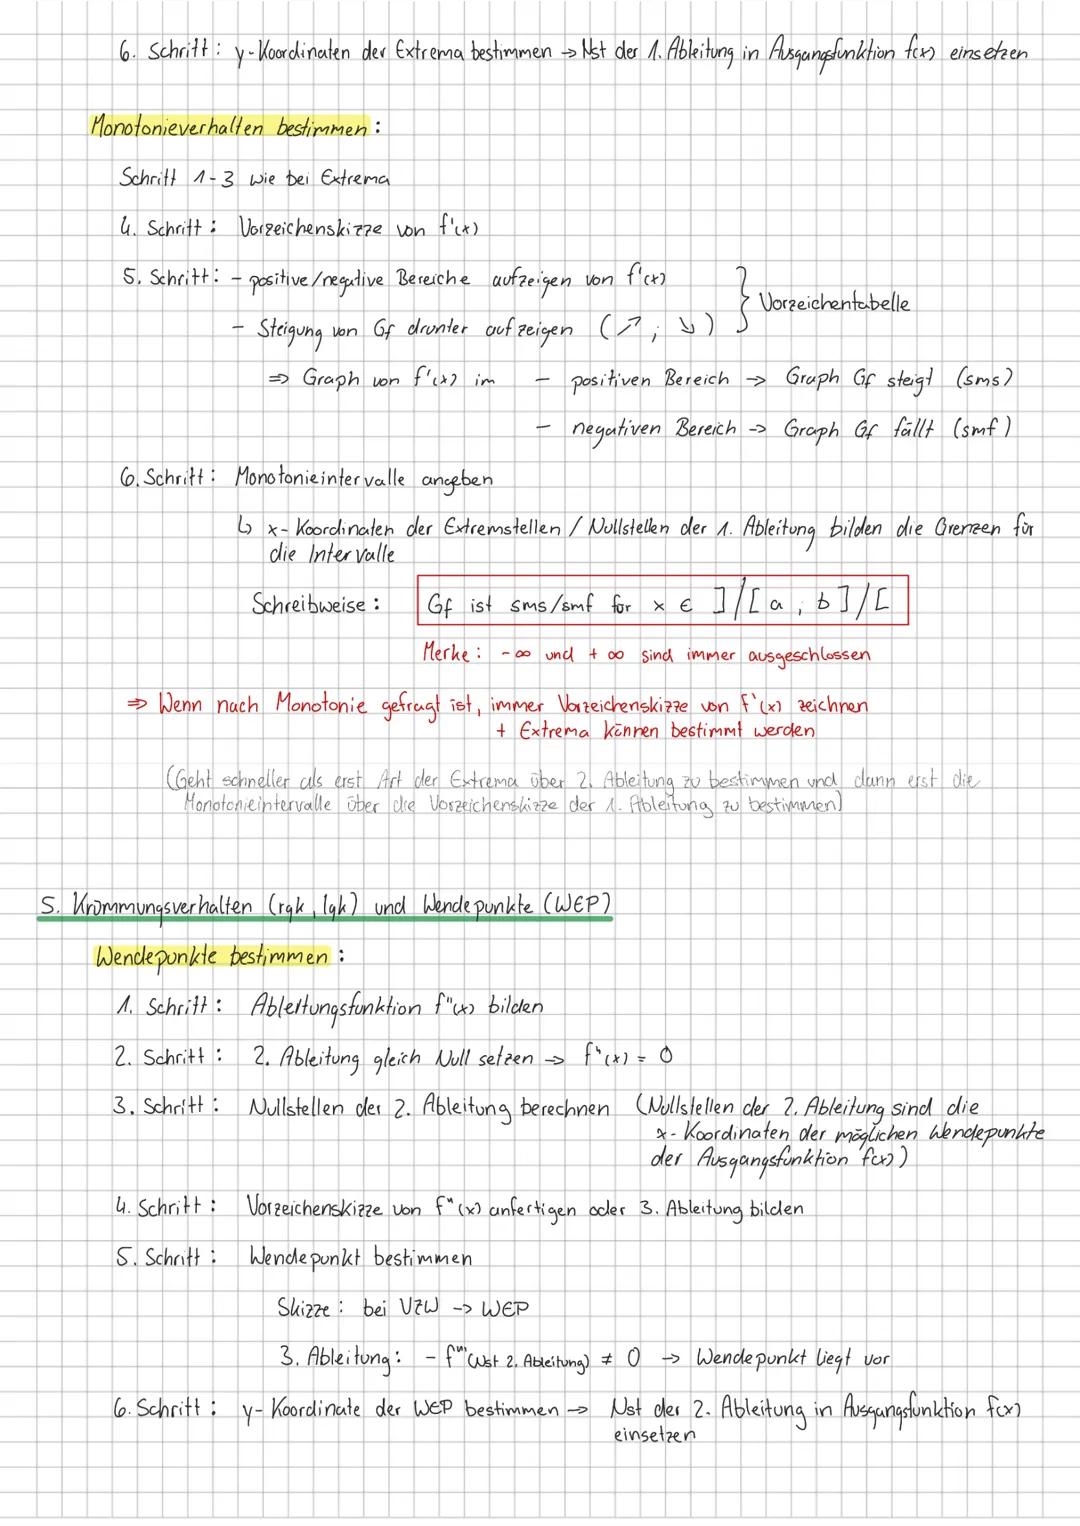 6. Schritt: y-Koordinaten der Extrema bestimmen → Nst der 1. Ableitung in Ausgangsfunktion f(x) einsetzen
Monotonieverhalten bestimmen:
Schritt 1-3 wie bei Extrema
4. Schritt: Vorzeichenskizze von f'(x)
5. Schritt: - positive/negative Bereiche aufzeigen von f'(x)
- Steigung von Gf drunter aufzeigen (↗; ↘) } Vorzeichentabelle
⇒ Graph von f'(x) im - positiven Bereich → Graph Gf steigt (sms)
- negativen Bereich → Graph Gf fällt (smf)
6. Schritt: Monotonieintervalle angeben
↳ x-Koordinaten der Extremstellen / Nullstellen der 1. Ableitung bilden die Grenzen für
die Intervalle
Schreibweise: Gf ist sms/smf für x ∈ ]/[a; b]/[
Merke: -∞ und +∞ sind immer ausgeschlossen
⇒ Wenn nach Monotonie gefragt ist, immer Vorzeichenskizze von f'(x) zeichnen
+ Extrema können bestimmt werden
(Geht schneller als erst Art der Extrema über 2. Ableitung zu bestimmen und dann erst die
Monotonieintervalle über die Vorzeichenskizze der 1. Ableitung zu bestimmen)
5. Krümmungsverhalten (rgk, lgk) und Wendepunkte (WEP)
Wendepunkte bestimmen:
1. Schritt: Ableitungsfunktion f"(x) bilden
2. Schritt: 2. Ableitung gleich Null setzen → f"(x) = 0
3. Schritt: Nullstellen der 2. Ableitung berechnen (Nullstellen der 2. Ableitung sind die
x-Koordinaten der möglichen Wendepunkte
der Ausgangsfunktion f(x))
4. Schritt: Vorzeichenskizze von f"(x) anfertigen oder 3. Ableitung bilden
5. Schritt: Wendepunkt bestimmen
Skizze: bei VZW → WEP
3. Ableitung: - f'''(Nst 2. Ableitung) ≠ 0 → Wendepunkt liegt vor
6. Schritt: y-Koordinate der WEP bestimmen → Nst der 2. Ableitung in Ausgangsfunktion f(x)
einsetzen